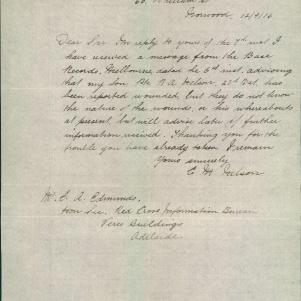 Norwood
12/9/16
Dear Sir In reply to yours of the 7th inst I
have received a message from the Base
Records, Melbourne dated the 6th inst, advising
that my son Pte. A Nelson, 27 Bat. has
been reported wounded, but they do not know
the nature of the wounds, or his whereabouts
at present, but will advise later if further
information received. Thanking you for the
trouble you have already taken I remain
Yours sincerely
C M Nelson
Mr. C. A. Edmunds,
Hon Sec. Red Cross Information Bureau
Verco Buildings
Adelaide